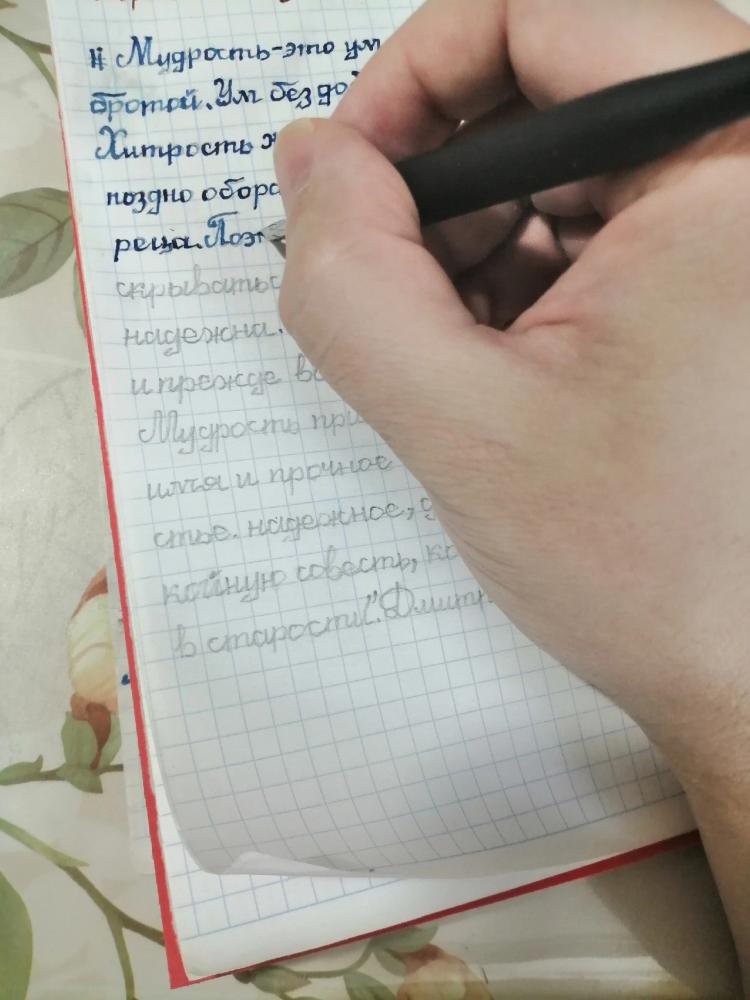 Мудрость-это ум
бротой. Ум без до
Хитрость
поздно обора
реща. Поэт
скрыватьс
надежна.
и прежде вс
Мудрость при
имя и прочное
стье. надежное,
койную совесть, ко
в старости!". Дмитр